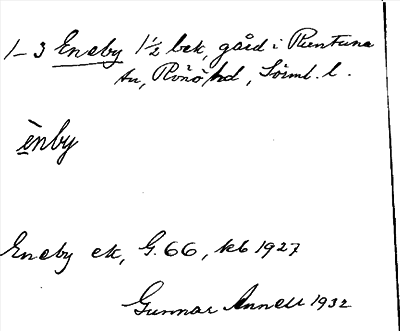 1-3 Eneby 1½ bek, gård i Runtuna
sn, Rönö hd, Sörml. l.
ènby
Eneby ek, G. 66, keb 1927
Gunnar Annell 1932